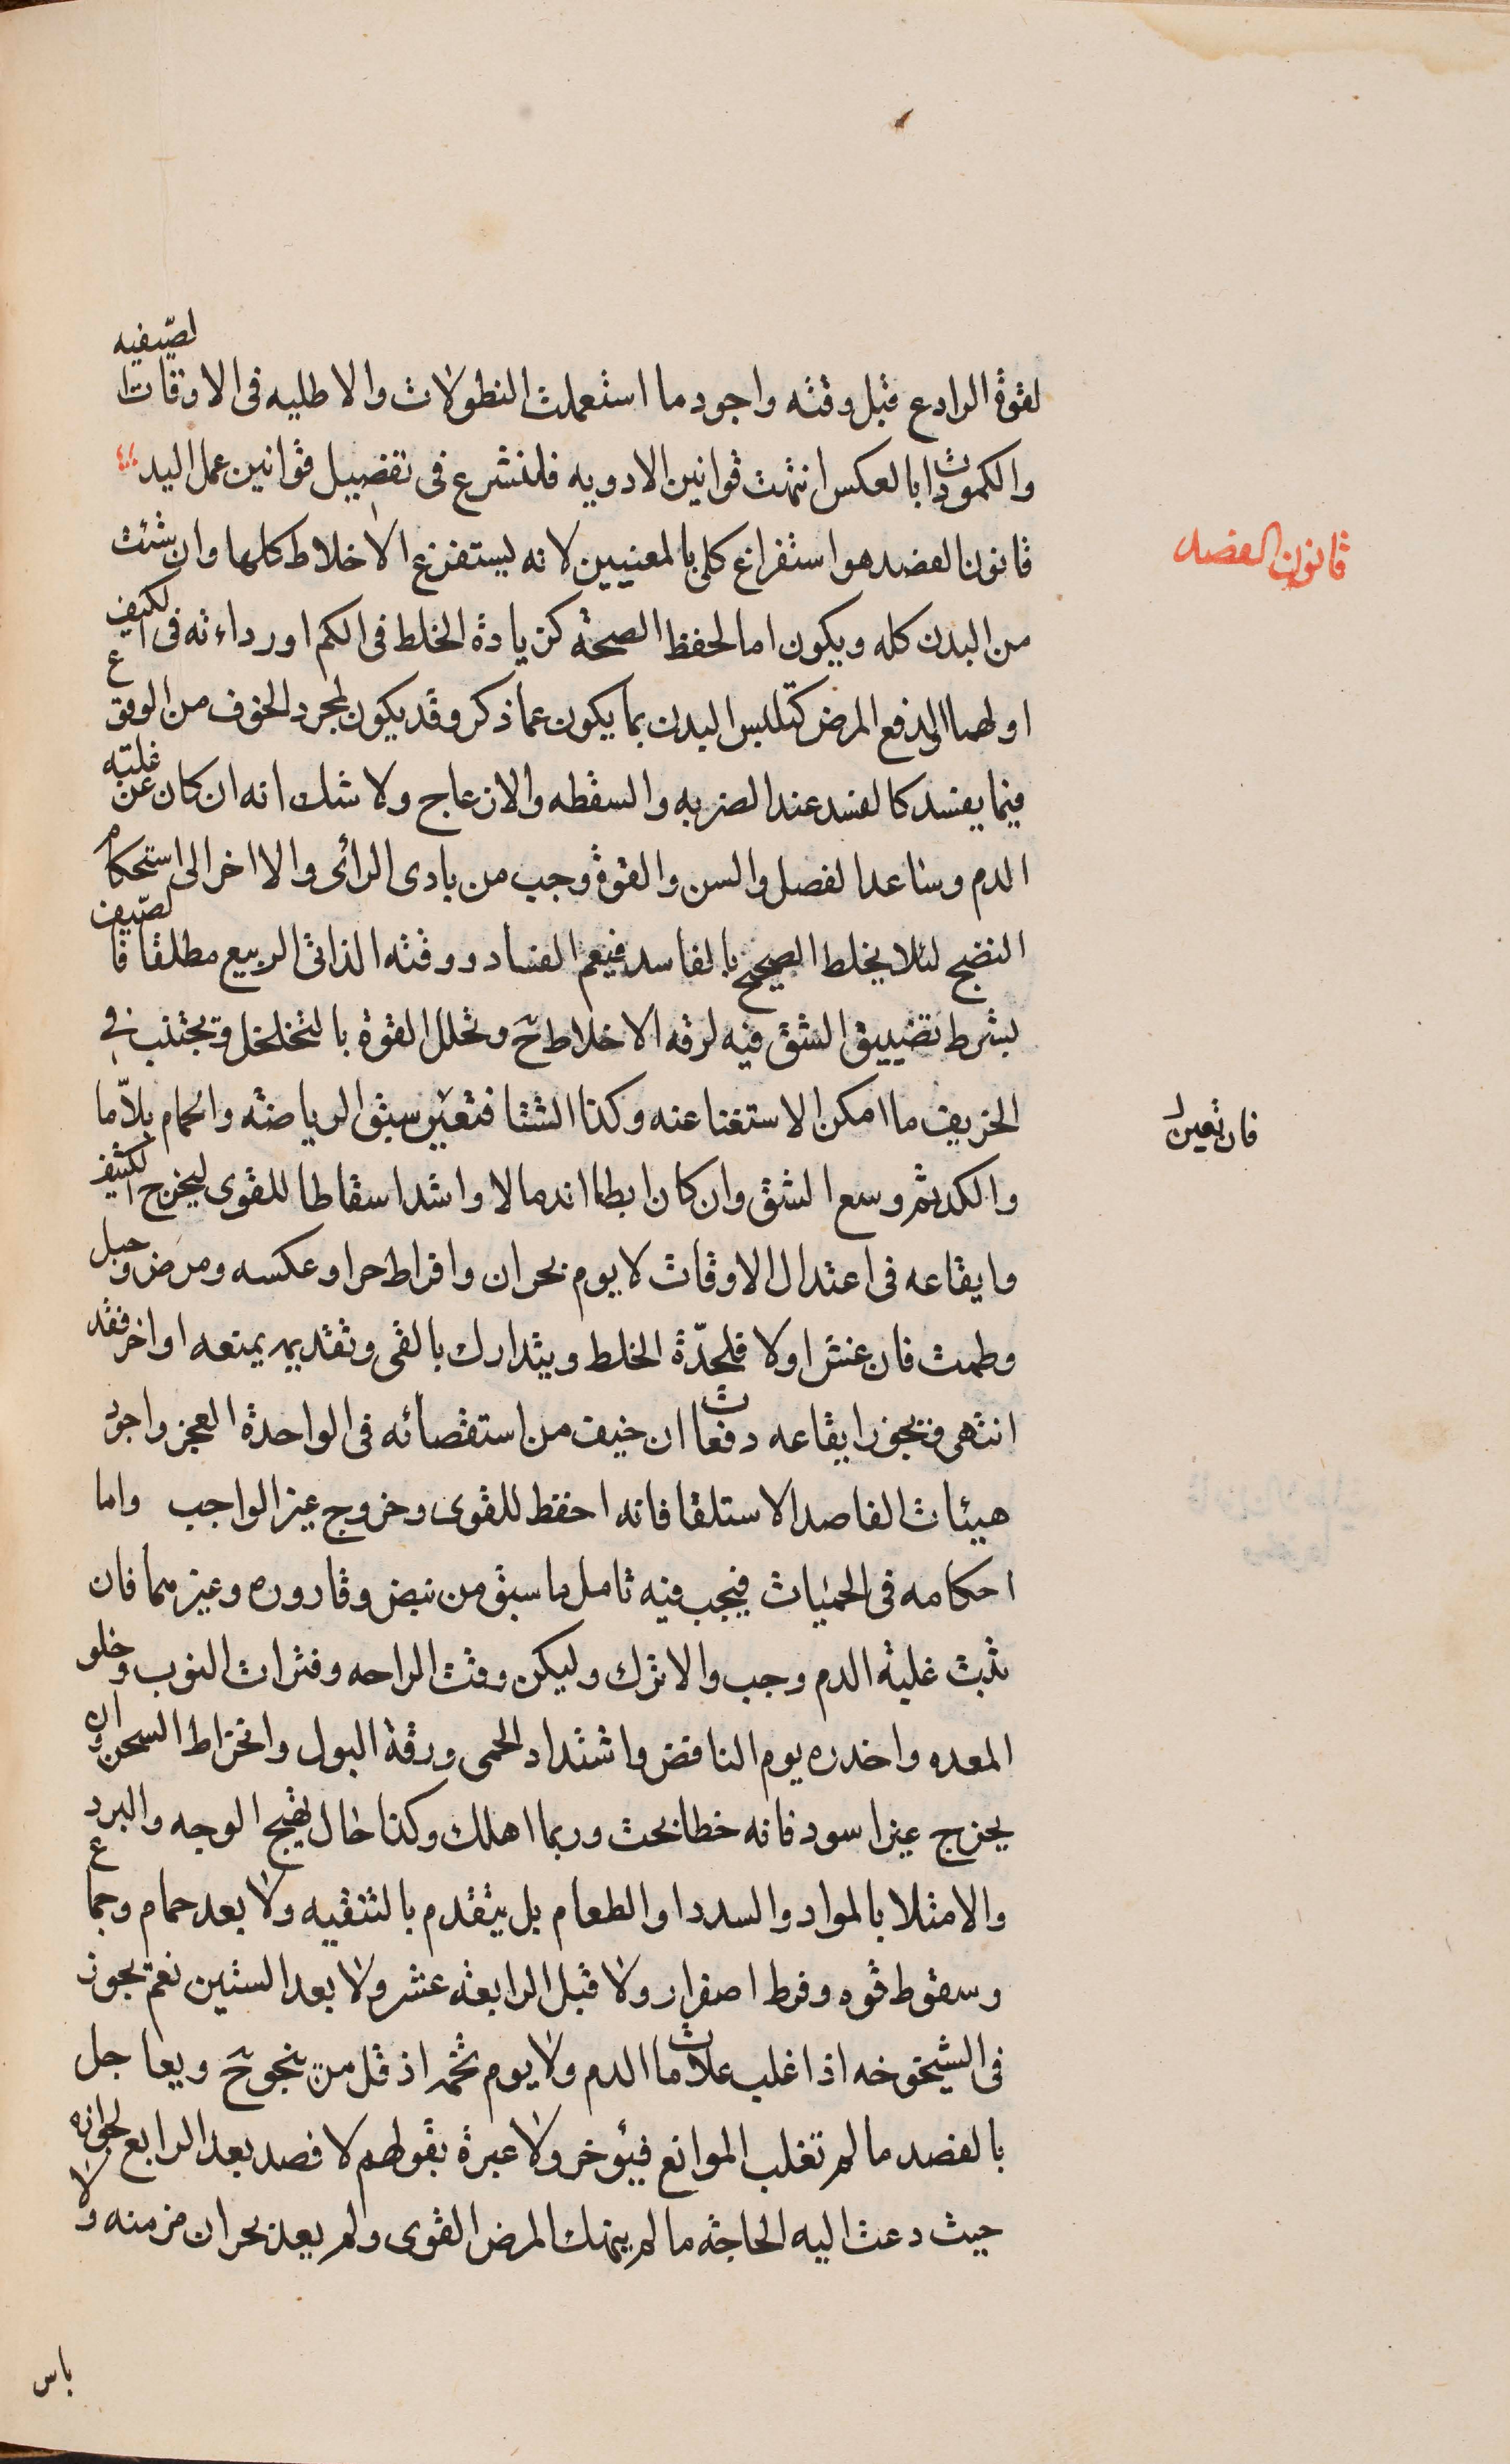 لقوة الرادع قبل وقته واجود ما استعملت النطولات والاطليه فى الاوقات الصيفيه
والكمودات بالعكس انتهت قوانين الادويه فلنشرع فى تفصيل قوانين عمل اليد
قانون الفصد
قانون الفصد هو استفراغ كلى بالمعنيين لانه يستفرغ الاخلاط كلها وان شئت
من البدن كله ويكون اما لحفظ الصحة كزيادة الخلط فى الكم او رداءته فى الكيف
او لهما او لدفع المرض كتلبس البدن بما يكون عما ذكر وقد يكون لمجرد الخوف من الوقوع
فيما يفسد كالفصد عند الضربه والسقطه والانزعاج ولا شك انه ان كان عن غلبته
الدم وساعد الفصل والسن والقوة وجب من بادى الرائى والا اخر الى استحكام
النضج لئلا يخلط الصحيح بالفاسد فيعم الفساد ووقته الذاتى الربيع مطلقا فالصيف
بشرط تضييق الشق فيه لرقه الاخلاط ح وتحلل القوة بالتخلخل ويجتنب فى
الخريف ما امكن الاستغنا عنه وكذا الشتا فتعين سبق الرياضته والحمام بلا ما
فان تعين
والكد ثم وسع الشق وان كان ابطا اندمالا واشد اسقاطا للقوى ليخرج الكثيف
وايقاعه فى اعتدال الاوقات لا يوم بحران وافراط حر او عكسه ومرض وحبل
وطمث فان عسر اولا فلحدّة الخلط ويتدارك بالقى وتقديمه يمنعه او اخر فقد
انتهى ويجوز ايقاعه دفعات ان خيف من استقصائه فى الواحدة العجز واجود
هيئات الفاصد الاستلقا فانه احفظ للقوى وخروج غير الواجب واما
احكامه فى الحميات فيجب فيه تامل ما سبق من نبض وقاروره وغيرهما فان
ثبت غلبة الدم وجب والا ترك وليكن وقت الراحه وفترات النوب وخلو
المعده واخذره يوم النافض واشتداد الحمى ورقة البول وانخراط السحن وان
يخرج غير اسود فانه خطا بحت وربما اهلك وكذا حال تهيج الوجه والبرد
والامتلا بالمواد والسدد او الطعام بل يتقدم بالتنقيه ولا بعد حمام وجماع
وسقوط قوه وفرط اصفرار ولا قبل الرابعة عشر ولا بعد الستين نعم يجوز
فى الشيخوخه اذا غلب علامات الدم ولا يوم تخمه اذ قل من ينجو ح ويعاجل
بالفصد ما لم تغلب الموانع فيئوخر ولا عبرة بقولهم لا فصد بعد الرابع لجوازه
حيث دعت اليه الحاجة ما لم ينهك المرض القوى ولم يعد بحران مزمنه ولا
باس